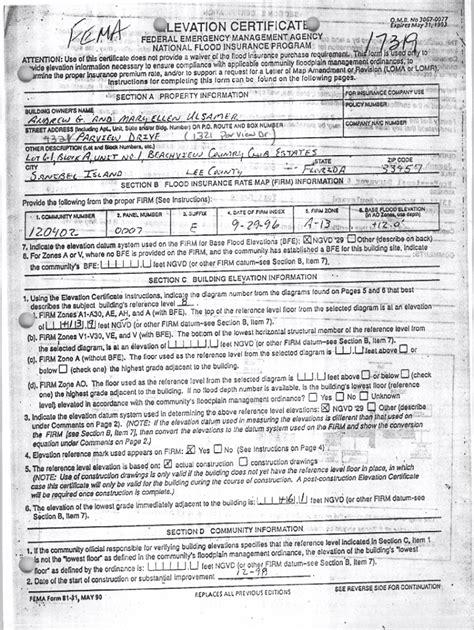 FEMA
ELEVATION CERTIFICATE
O.M.B. No 3067-0077
Expires May 31, 1993
FEDERAL EMERGENCY MANAGEMENT AGENCY
NATIONAL FLOOD INSURANCE PROGRAM
17319
ATTENTION: Use of this certificate does not provide a waiver of the flood insurance purchase requirement. This form is used only to
provide elevation information necessary to ensure compliance with applicable community floodplain management ordinances, to
determine the proper insurance premium rate, and/or to support a request for a Letter of Map Amendment or Revision (LOMA or LOMR).
Instructions for completing this form can be found on the following pages.
SECTION A PROPERTY INFORMATION
FOR INSURANCE COMPANY USE
BUILDING OWNER'S NAME
POLICY NUMBER
ANDREW G. AND MARYELLEN ULSAMER
STREET ADDRESS (Including Apt., Unit, Suite and/or Bldg. Number) OR P.O. ROUTE AND BOX NUMBER
COMPANY NAIC NUMBER
PARVIEW DRIVE (1321 Par View Dr)
OTHER DESCRIPTION (Lot and Block Numbers, etc.)
LOT 61, BLOCK A, UNIT NO. 1, BEACHVIEW COUNTRY CLUB ESTATES
CITY STATE ZIP CODE
SANIBEL ISLAND LEE COUNTY FLORIDA 33957
SECTION B FLOOD INSURANCE RATE MAP (FIRM) INFORMATION
Provide the following from the proper FIRM (See Instructions):
1. COMMUNITY NUMBER 2. PANEL NUMBER 3. SUFFIX 4. DATE OF FIRM INDEX 5. FIRM ZONE 6. BASE FLOOD ELEVATION
(in AO Zones, use depth)
120402 0007 E 9-29-96 A-13 +12.0'
7. Indicate the elevation datum system used on the FIRM for Base Flood Elevations (BFE): NGVD '29 Other (describe on back)
8. For Zones A or V, where no BFE is provided on the FIRM, and the community has established a BFE for this building site, indicate
the community's BFE: feet NGVD (or other FIRM datum–see Section B, Item 7).
SECTION C BUILDING ELEVATION INFORMATION
1. Using the Elevation Certificate Instructions, indicate the diagram number from the diagrams found on Pages 5 and 6 that best
describes the subject building's reference level 8.
2(a). FIRM Zones A1-A30, AE, AH, and A (with BFE). The top of the reference level floor from the selected diagram is at an elevation
of feet NGVD (or other FIRM datum–see Section B, Item 7).
(b). FIRM Zones V1-V30, VE, and V (with BFE). The bottom of the lowest horizontal structural member of the reference level from
the selected diagram, is at an elevation of feet NGVD (or other FIRM datum–see Section B, Item 7).
(c). FIRM Zone A (without BFE). The floor used as the reference level from the selected diagram is feet above or
below (check one) the highest grade adjacent to the building.
(d). FIRM Zone AO. The floor used as the reference level from the selected diagram is feet above or below (check
one) the highest grade adjacent to the building. If no flood depth number is available, is the building's lowest floor (reference
level) elevated in accordance with the community's floodplain management ordinance? Yes No Unknown
3. Indicate the elevation datum system used in determining the above reference level elevations: NGVD '29 Other (describe
under Comments on Page 2). (NOTE: If the elevation datum used in measuring the elevations is different than that used on
the FIRM [see Section B, Item 7], then convert the elevations to the datum system used on the FIRM and show the conversion
equation under Comments on Page 2.)
4. Elevation reference mark used appears on FIRM: Yes No (See Instructions on Page 4)
5. The reference level elevation is based on: actual construction construction drawings
(NOTE: Use of construction drawings is only valid if the building does not yet have the reference level floor in place, in which
case this certificate will only be valid for the building during the course of construction. A post-construction Elevation Certificate
will be required once construction is complete.)
6. The elevation of the lowest grade immediately adjacent to the building is: feet NGVD (or other FIRM datum-see
Section B, Item 7).
SECTION D COMMUNITY INFORMATION
1. If the community official responsible for verifying building elevations specifies that the reference level indicated in Section C, Item 1
is not the "lowest floor" as defined in the community's floodplain management ordinance, the elevation of the building's "lowest
floor" as defined by the ordinance is: feet NGVD (or other FIRM datum–see Section B, Item 7).
2. Date of the start of construction or substantial improvement 12-98
FEMA Form 81-31, MAY 90 REPLACES ALL PREVIOUS EDITIONS SEE REVERSE SIDE FOR CONTINUATION